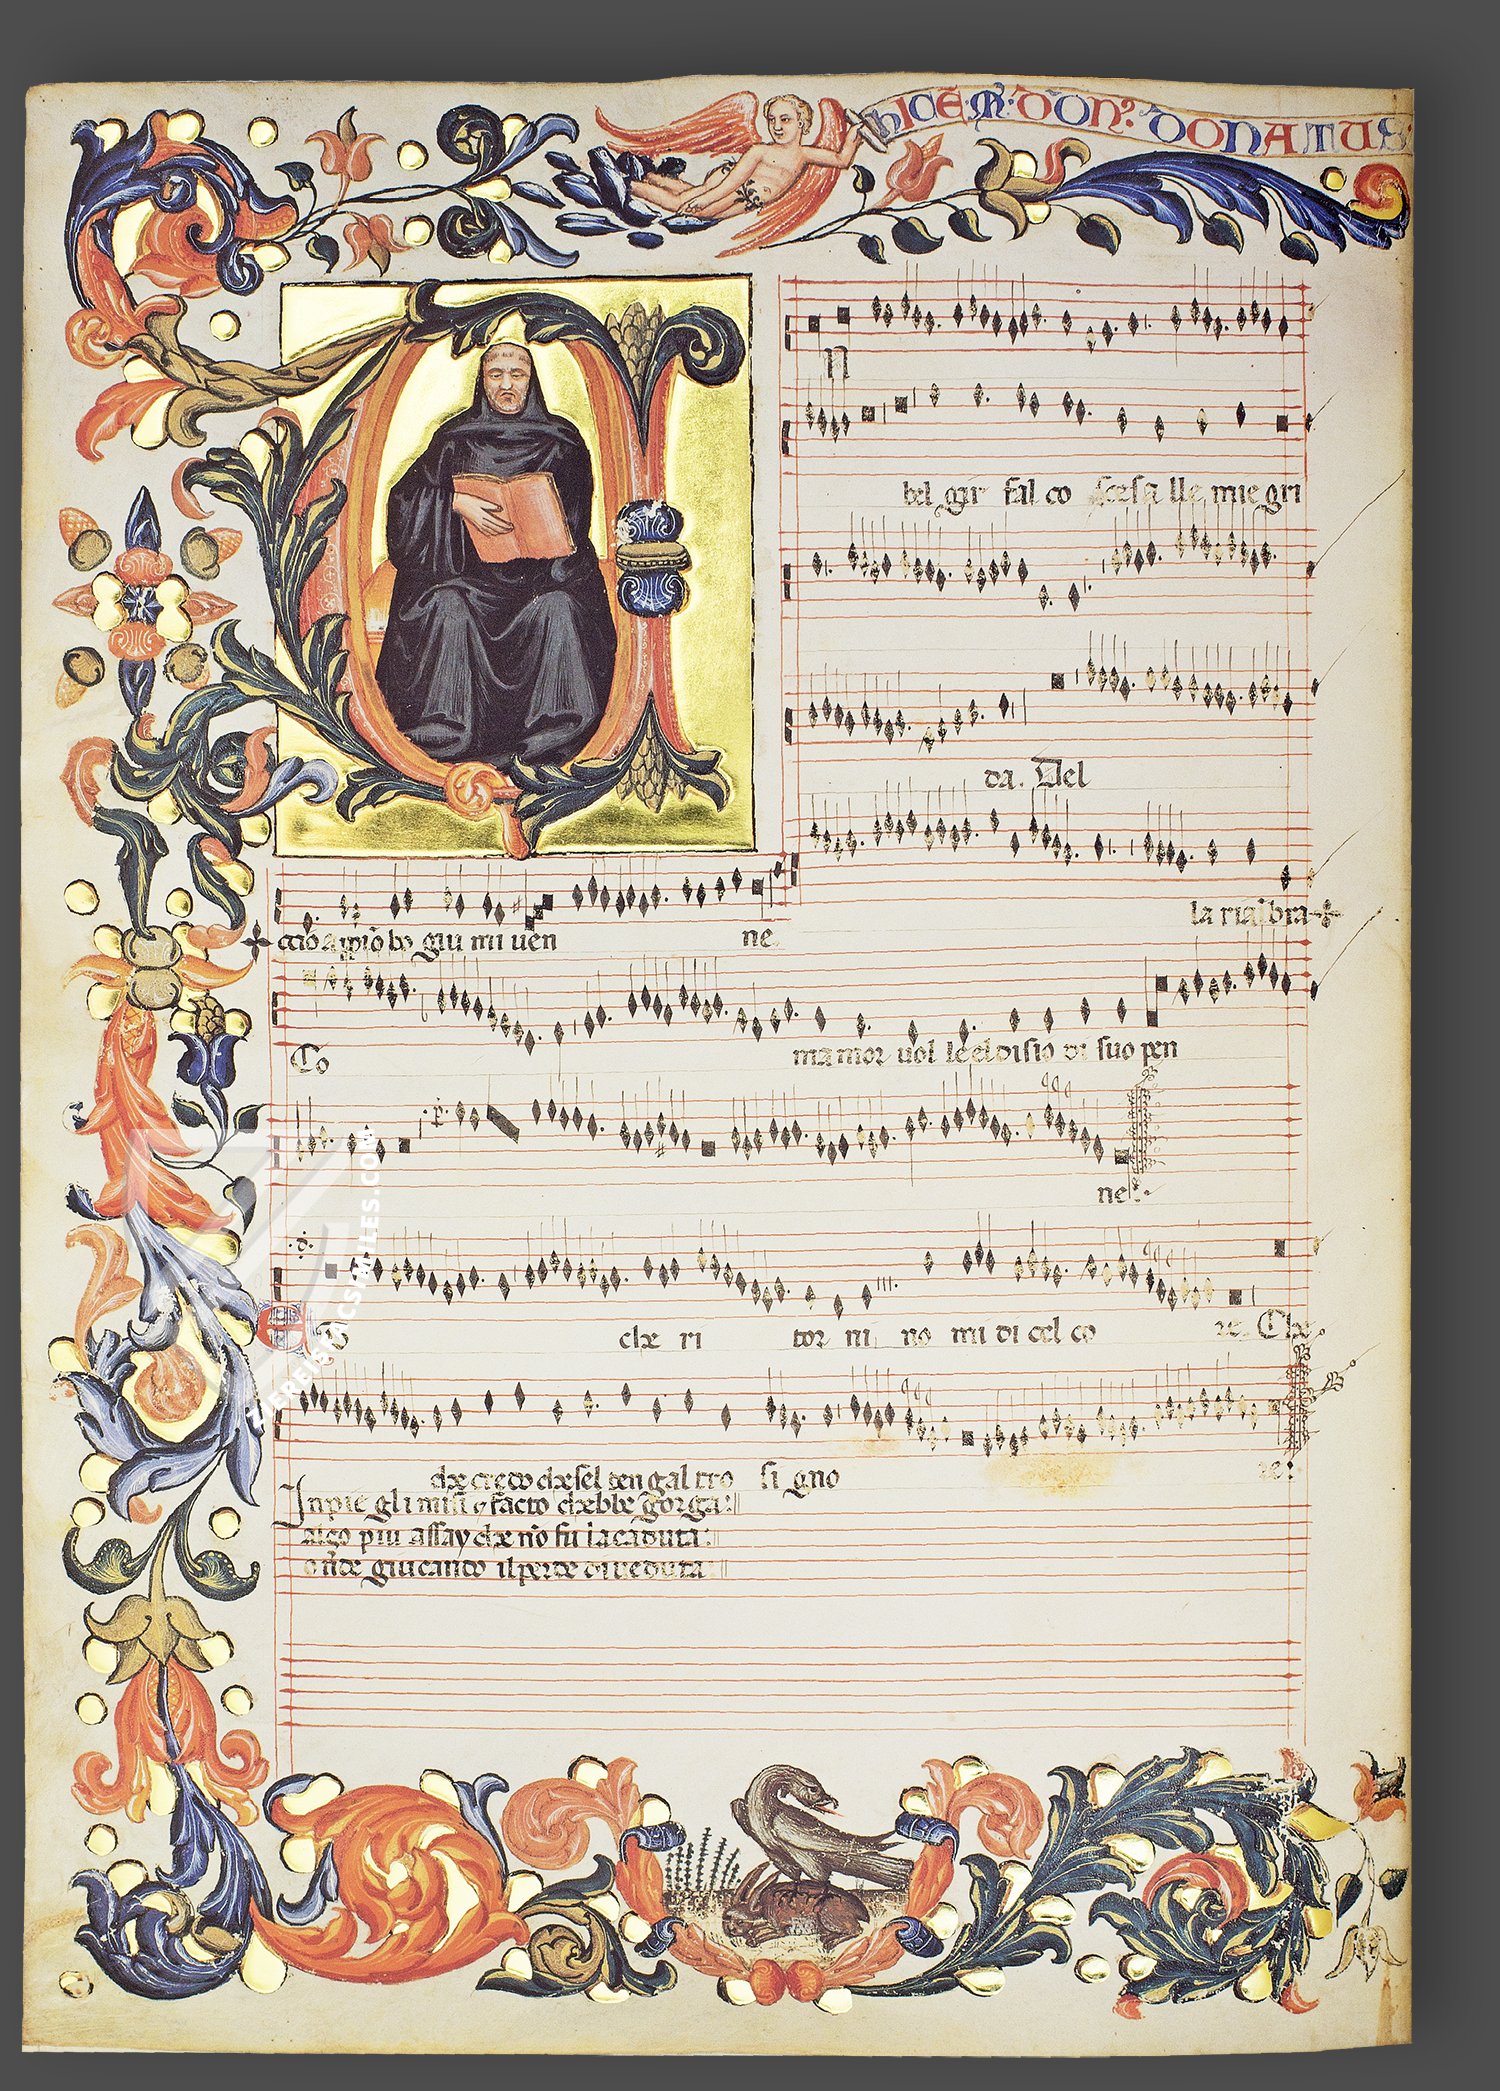 HIC E M DON DONATUS
n
bel gir fal co scesa lle mie gri
da. Del
la ria 
ne
Co mamor vol le el disio di suo pen
ne
che ri tor ni no mi di cel co re. Che
che credo che sel ten gal tro si gno
re
In pie gli misi facto chebbe gorga
alço piu assay che no fu la caduta
onde giucando il perde di veduta
ZIEREISFACSIMILES.COM